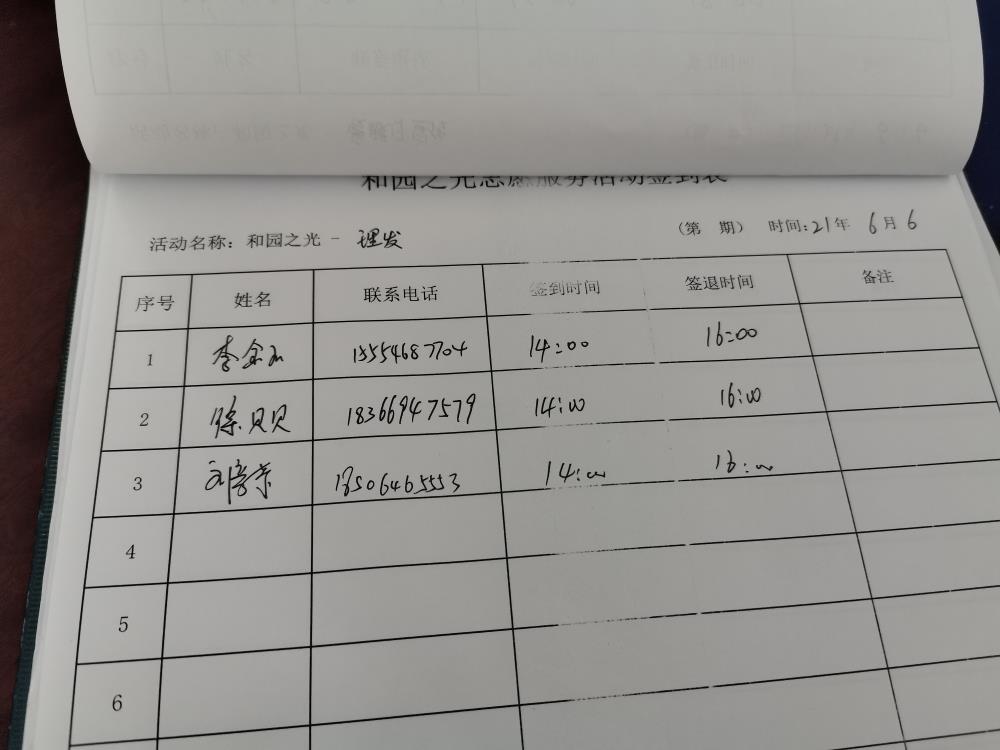 和园之光志愿服务活动签到表
活动名称：和园之光 - 理发 （第 期） 时间：21年 6月6
序号 姓名 联系电话 签到时间 签退时间 备注
1 李金玉 15554687704 14:00 16:00
2 徐贝贝 18366947579 14:00 16:00
3 刘 18506465553 14:00 16:00
4
5
6